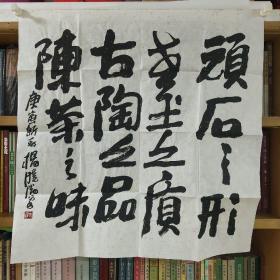 頑石之形
老玉之質
古陶之品
陳茶之味
庚寅新秋 楊